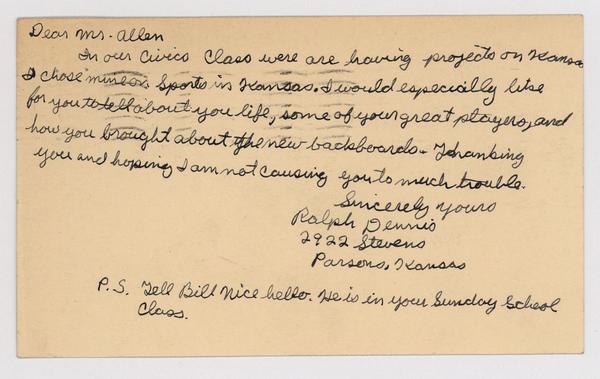 Dear Mr. Allen
In our Civics Class were are having projects on Kansas
I chose mine on Sports in Kansas. I would especially like
for you to tell about you life, some of your great players, and
how you brought about the new backboards. Thanking
you and hoping I am not causing you to much trouble.
Sincerely yours
Ralph Dennis
2922 Stevens
Parsons, Kansas
P.S. Tell Bill Nice hello. He is in your Sunday School
Class.